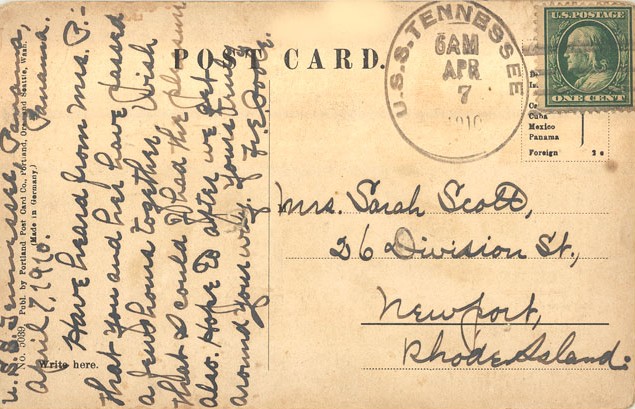 POST CARD.
U.S.S. TENNESSEE
6AM
APR
7
1910
U.S. POSTAGE
ONE CENT
Cuba
Mexico
Panama
Foreign
U.S.S. Tennessee, Panama,
April 7, 1910. Panama.
Have heard from Mrs. P.-
that you and her have passed
a few hours together. Wish
that I could of had the pleasure
also. Hope to after we get
around your way. Yours truly
No. 5039. Publ. by Portland Post Card Co., Portland, Ore. and Seattle, Wash.
(Made in Germany.)
Write here.
Mrs. Sarah Scott,
26 Division St.,
Newport,
Rhode Island.